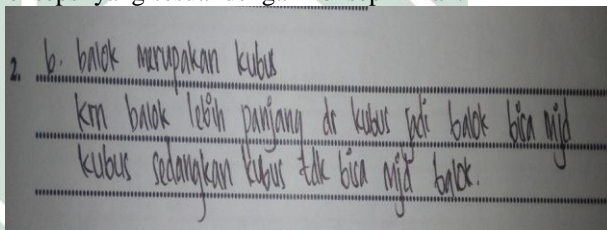 2. b. balok merupakan kubus
krn balok lebih panjang dr kubus jadi balok bisa mjd
kubus sedangkan kubus tdk bisa mjd balok.